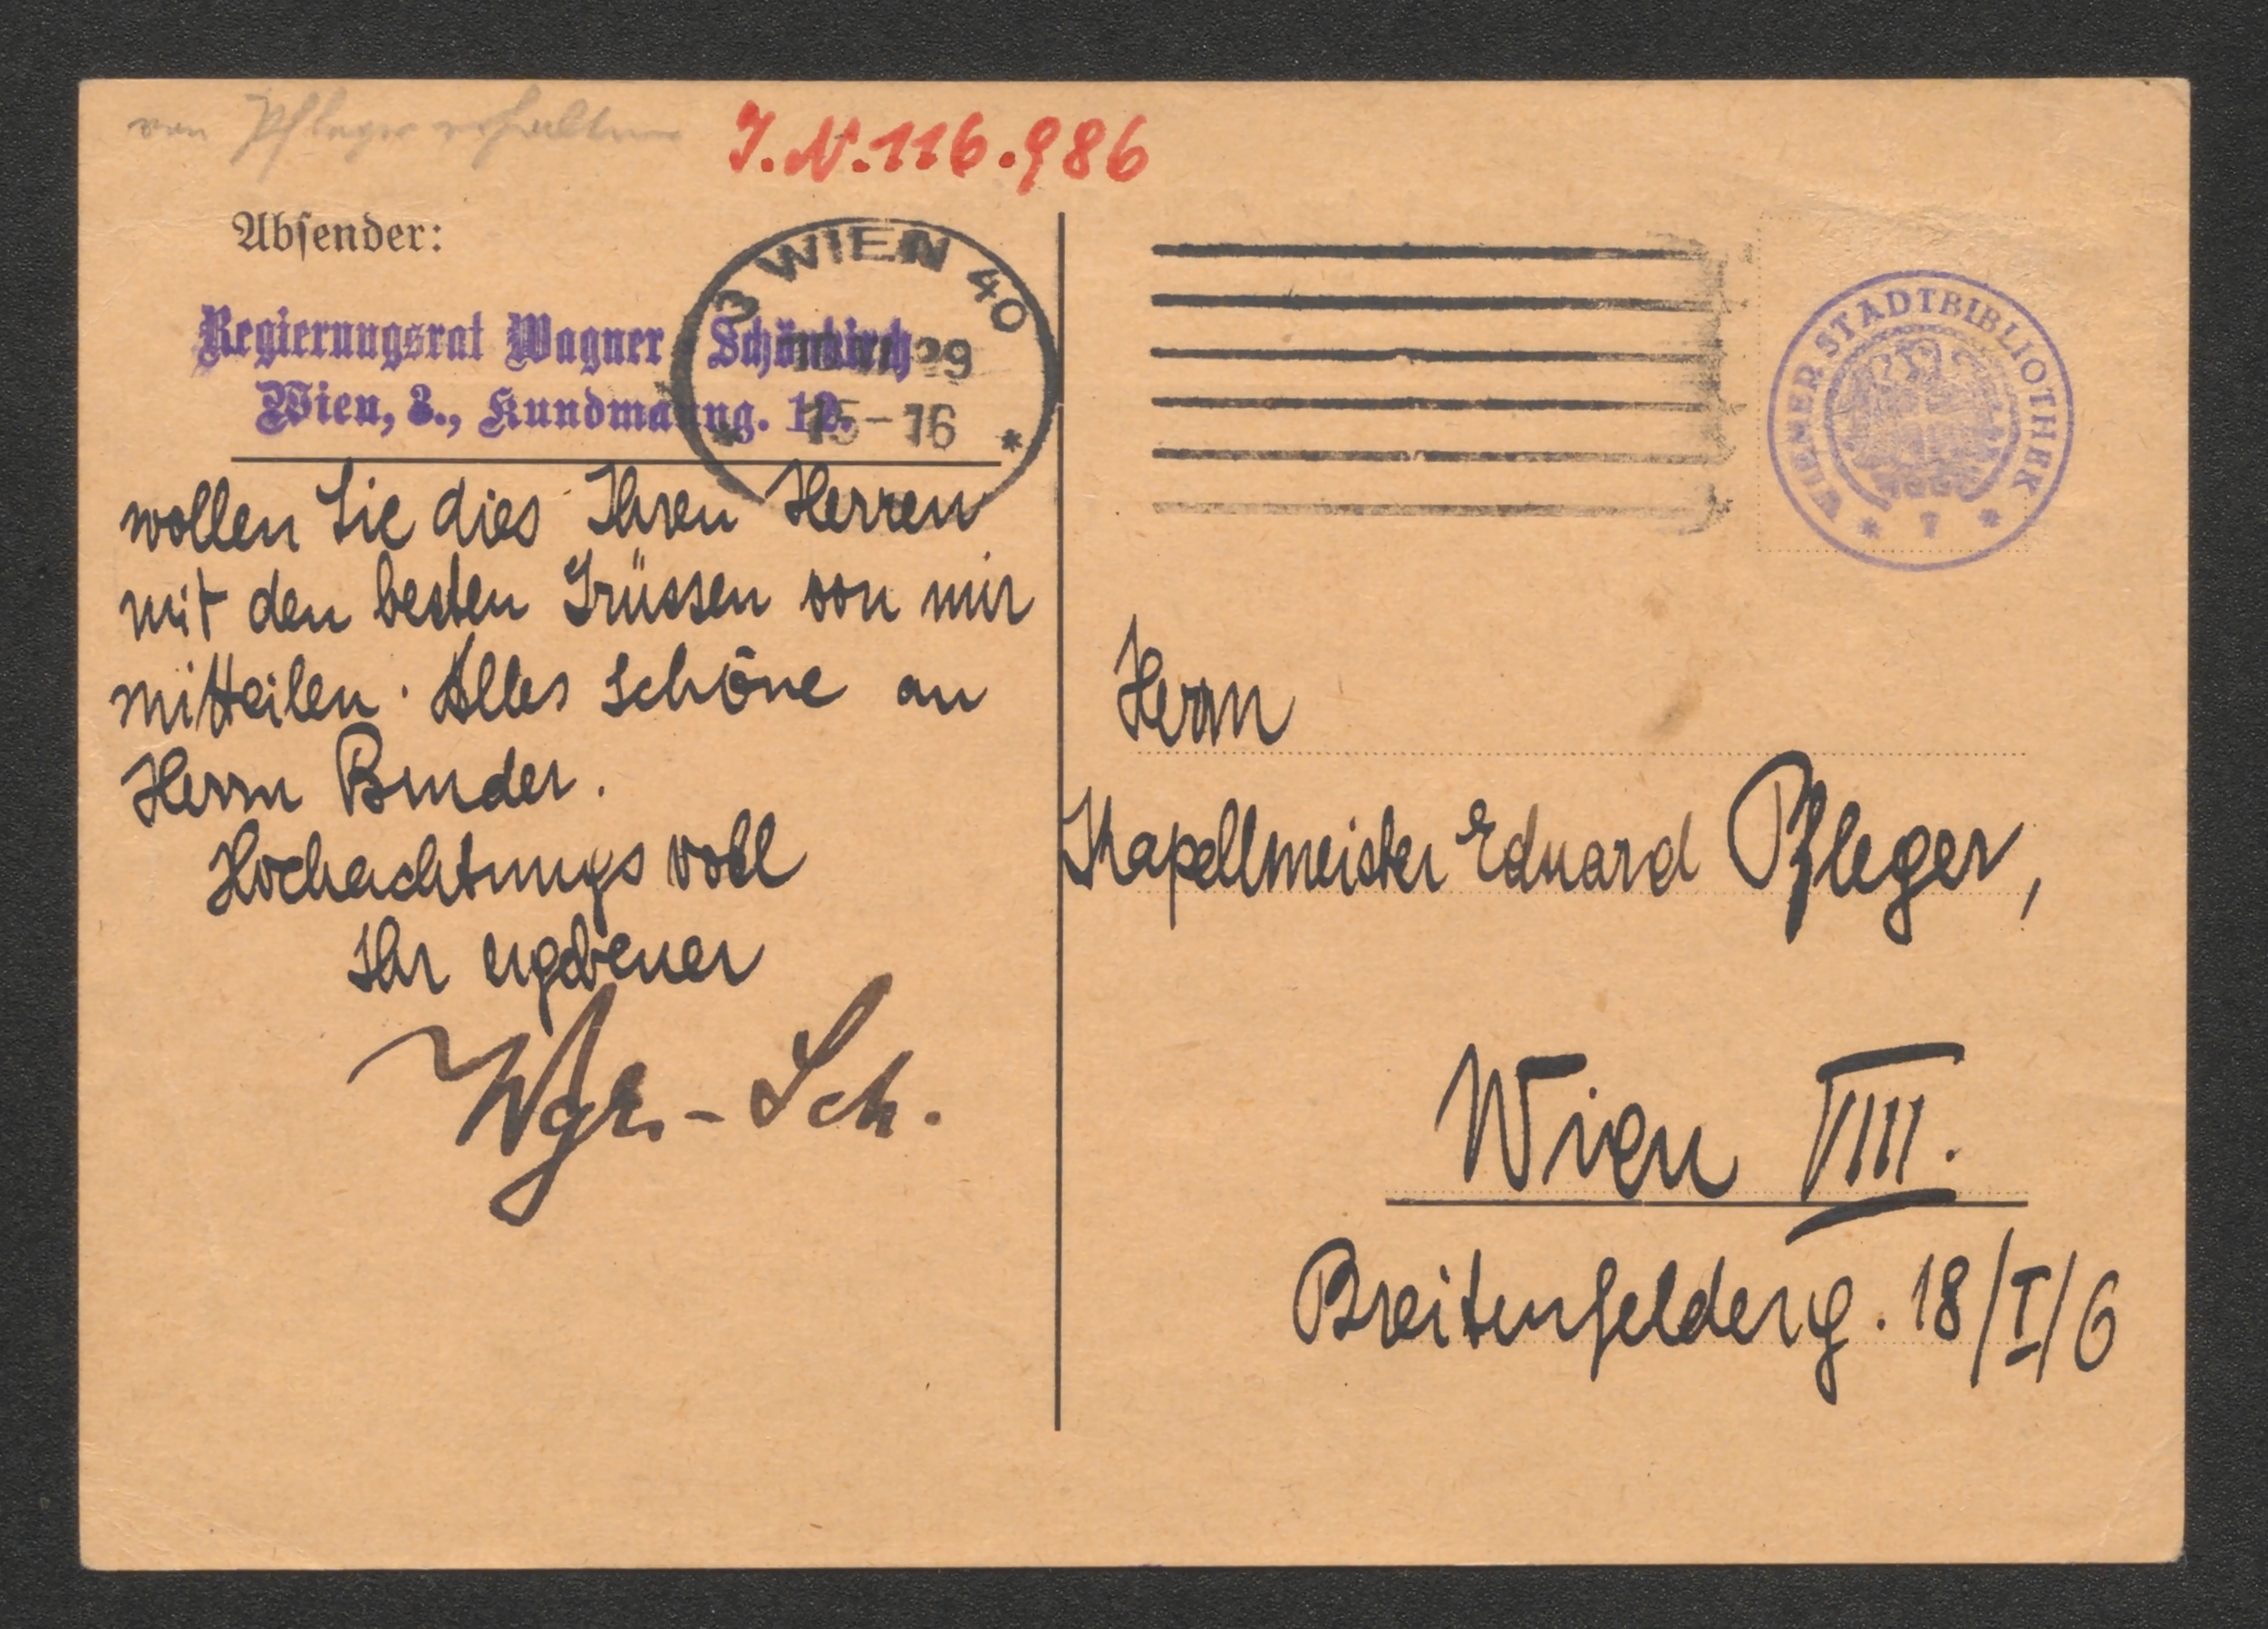 von Pfleger erhalten
J.N. 116.986
Absender:
Regierungsrat Wagner Schönkirch
Wien, 3., Kundmanng. 12.
3 WIEN 40
29
15-16
* *
WIENER STADTBIBLIOTHEK
* 7 *
wollen Sie dies Ihren Herren
mit den besten Grüssen von mir
mitteilen. Alles Schöne an
Herrn Binder.
Hochachtungsvoll
Ihr ergebener
Wgr.-Sch.
Herrn
Kapellmeister Eduard Pfleger,
Wien VIII.
Breitenfelderg. 18/I/6